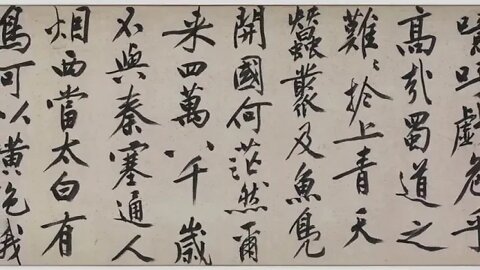 噫吁戲危乎
高哉蜀道之
難〻於上青天
蠶叢及魚鳧
開國何茫然爾
来四萬八千歲
不與秦塞通人
烟西當太白有
鳥可以橫絕峨